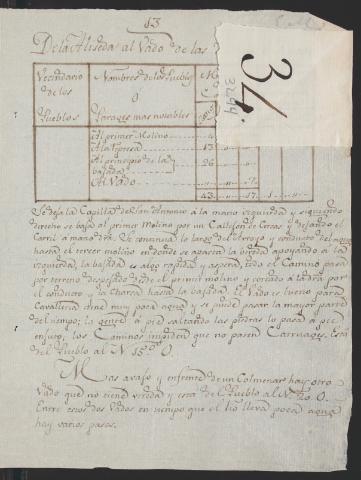 13
De la Aliseda al Vado de las
34
3244
Vecindario de los Pueblos
Nombres de los Pueblos O Parages mas notables
Al primer Molino 4
A la Presa 13
Al principio de la bajada 26
Al Vado
43 17 1
Se deja la Capilla de San Antonio a la mano izquierda y siguiendo
derecho se baja al primer Molino por un Callejon de Cercas y dejando el
Carril a mano dra. Se continua lo largo del arroyo y conducto del agua
hasta el tercer molino en donde se aparta la vereda apoyando a la
izquierda, la bajada es algo rapida y todo el Camino pasa
por terreno despejado desde el primer molino
el conducto y la charca hasta la bajada. El Vado es bueno para
Cavalleria tiene muy poca agua y se puede pasar la mayor parte
del tiempo; la gente a pie saltando las piedras lo pasa a pie
enjuto, los Caminos impiden que no pasen Carruages. Esta
del Pueblo al N O.
Mas avajo y enfrente de un Colmenar hay otro
Vado que no tiene vereda y esta del Pueblo al N. O.
Entre estos dos Vados en tiempo que el Rio lleva poca agua
hay varios pasos.